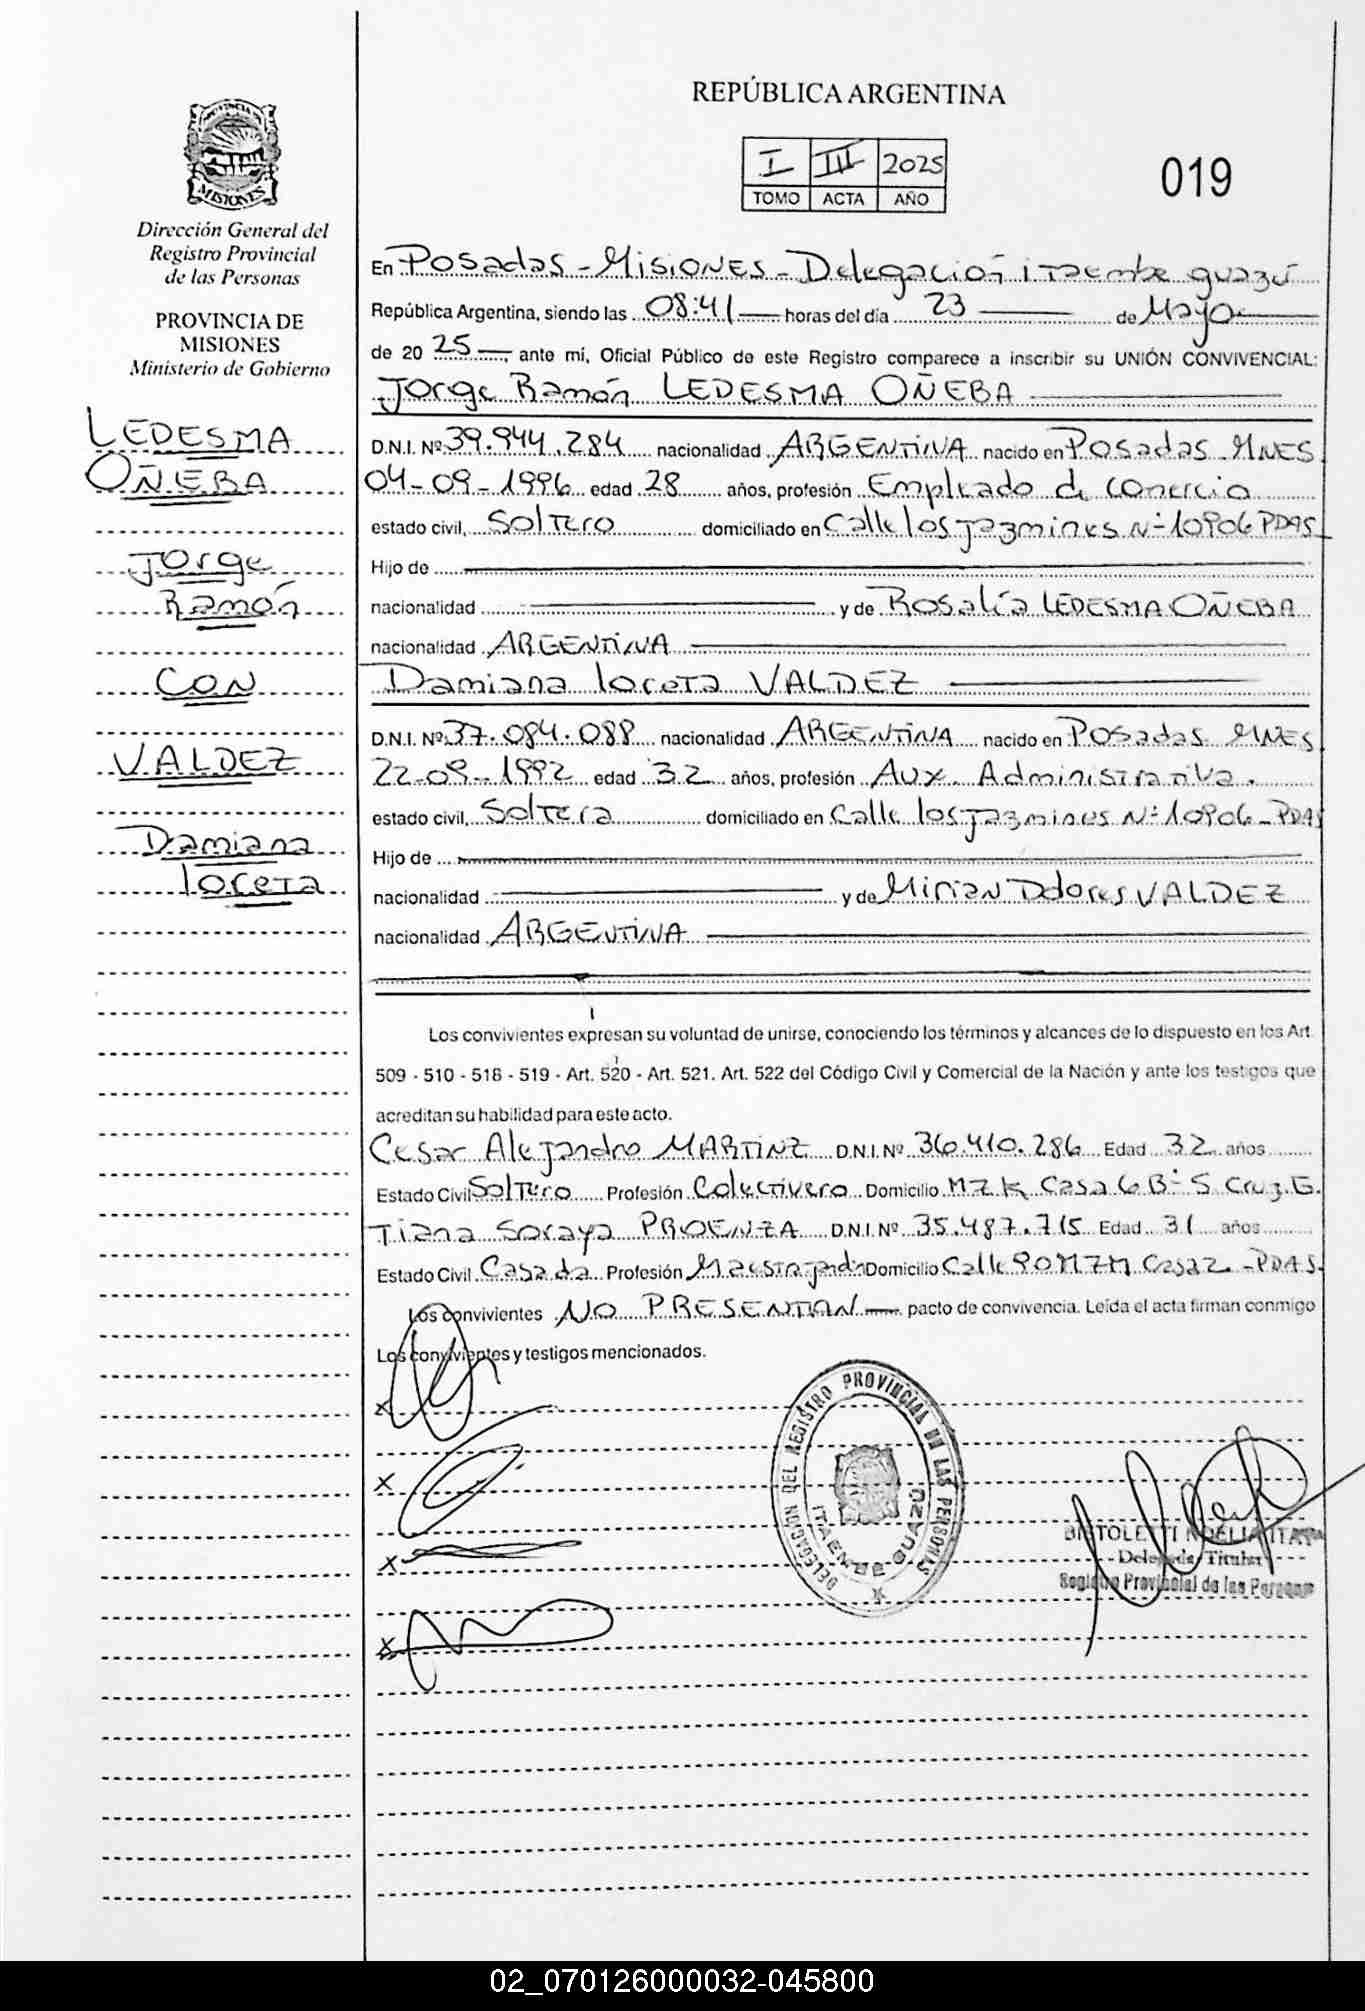 REPÚBLICA ARGENTINA
I III 2025
TOMO ACTA AÑO
019
MISIONES
Dirección General del
Registro Provincial
de las Personas
PROVINCIA DE
MISIONES
Ministerio de Gobierno
LEDESMA
OÑEBA
Jorge
Ramón
CON
VALDEZ
Damiana
loreta
En Posadas - Misiones - Delegación itaembe guazú
República Argentina, siendo las 08:41 horas del día 23 de Mayo
de 20 25, ante mí, Oficial Público de este Registro comparece a inscribir su UNIÓN CONVIVENCIAL:
Jorge Ramón LEDESMA OÑEBA
D.N.I. Nº 39.944.284 nacionalidad ARGENTINA nacido en Posadas MNES
04-09-1996 edad 28 años, profesión Empleado de comercio
estado civil, Soltero domiciliado en Calle los jazmines Nº 10906 PDAS
Hijo de
nacionalidad y de Rosalía LEDESMA OÑEBA
nacionalidad ARGENTINA
Damiana loreta VALDEZ
D.N.I. Nº 37.084.088 nacionalidad ARGENTINA nacido en Posadas MNES
22-09-1992 edad 32 años, profesión Aux. Administrativa.
estado civil, Soltera domiciliado en Calle los jazmines Nº 10906 - PDAS
Hijo de
nacionalidad y de Mirian Dolores VALDEZ
nacionalidad ARGENTINA
Los convivientes expresan su voluntad de unirse, conociendo los términos y alcances de lo dispuesto en los Art.
509 - 510 - 518 - 519 - Art. 520 - Art. 521. Art. 522 del Código Civil y Comercial de la Nación y ante los testigos que
acreditan su habilidad para este acto.
Cesar Alejandro MARTINZ D.N.I. Nº 36.410.286 Edad 32 años
Estado Civil Soltero Profesión Colectivero Domicilio MZ K Casa 6 Bº S Cruz.E.
Tiana Soraya PROENZA D.N.I. Nº 35.487.715 Edad 31 años
Estado Civil Casada Profesión Domicilio Calle 90 MZ M Casa 2 - PDAS.
Los convivientes NO PRESENTAN pacto de convivencia. Leída el acta firman conmigo
Los convivientes y testigos mencionados.
DELEGACION DEL REGISTRO PROVINCIAL DE LAS PERSONAS
ITAEMBE GUAZÚ
Delegada Titular
Registro Provincial de las Personas
02_070126000032-045800